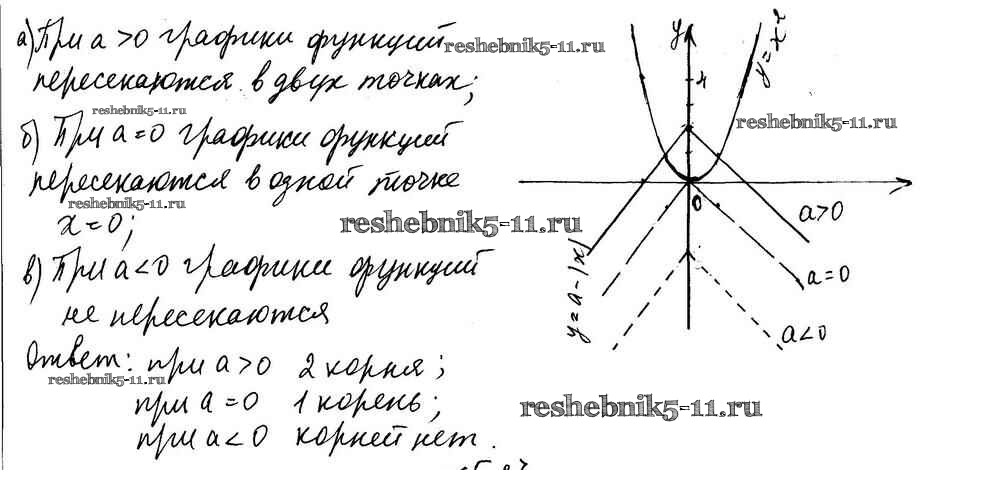 а) При a>0 графики функций
пересекаются в двух точках;
б) При a=0 графики функций
пересекаются в одной точке
x=0;
в) При a<0 графики функций
не пересекаются
Ответ: при a>0 2 корня;
при a=0 1 корень;
при a<0 корней нет.
reshebnik5-11.ru
reshebnik5-11.ru
reshebnik5-11.ru
reshebnik5-11.ru
reshebnik5-11.ru
reshebnik5-11.ru
reshebnik5-11.ru
y
y=x²
4
0
a>0
a=0
a<0
y=a-|x|